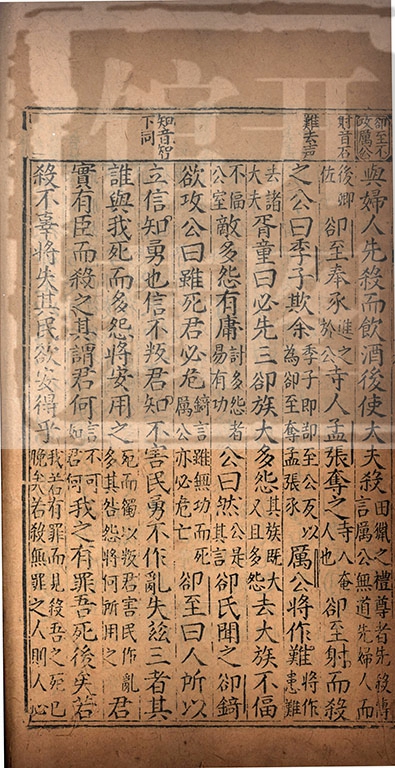 郤至不
攻厲公
射音石
難去聲
知音智
下同
與婦人先殺而飲酒後使大夫殺田獵之禮尊者先殺傳言厲公無道先婦人而
後卿佐郤至奉豕進之於公寺人孟張奪之寺人奄人也郤至射而殺
之公曰季子欺余季子即郤至公反以為郤至奪孟張豕厲公將作難將作患難
去諸大夫胥童曰必先三郤族大多怨其族既大又且多怨去大族不偪
不偪公室敵多怨有庸討多怨者易有功公曰然公是其言郤氏聞之郤錡
欲攻公曰雖死君必危錡言雖無功而死厲公亦必危亡郤至曰人所以
立信知勇也信不叛君知不害民勇不作亂失茲三者其
誰與我死而多怨將安用之死而獨以叛君害民作亂多其咎怨將何所用之君
實有臣而殺之其謂君何言不可如君何我之有罪吾死後矣若
殺不辜將失其民欲安得乎我若有罪而見殺吾之死已晚矣若殺無罪之人則人心